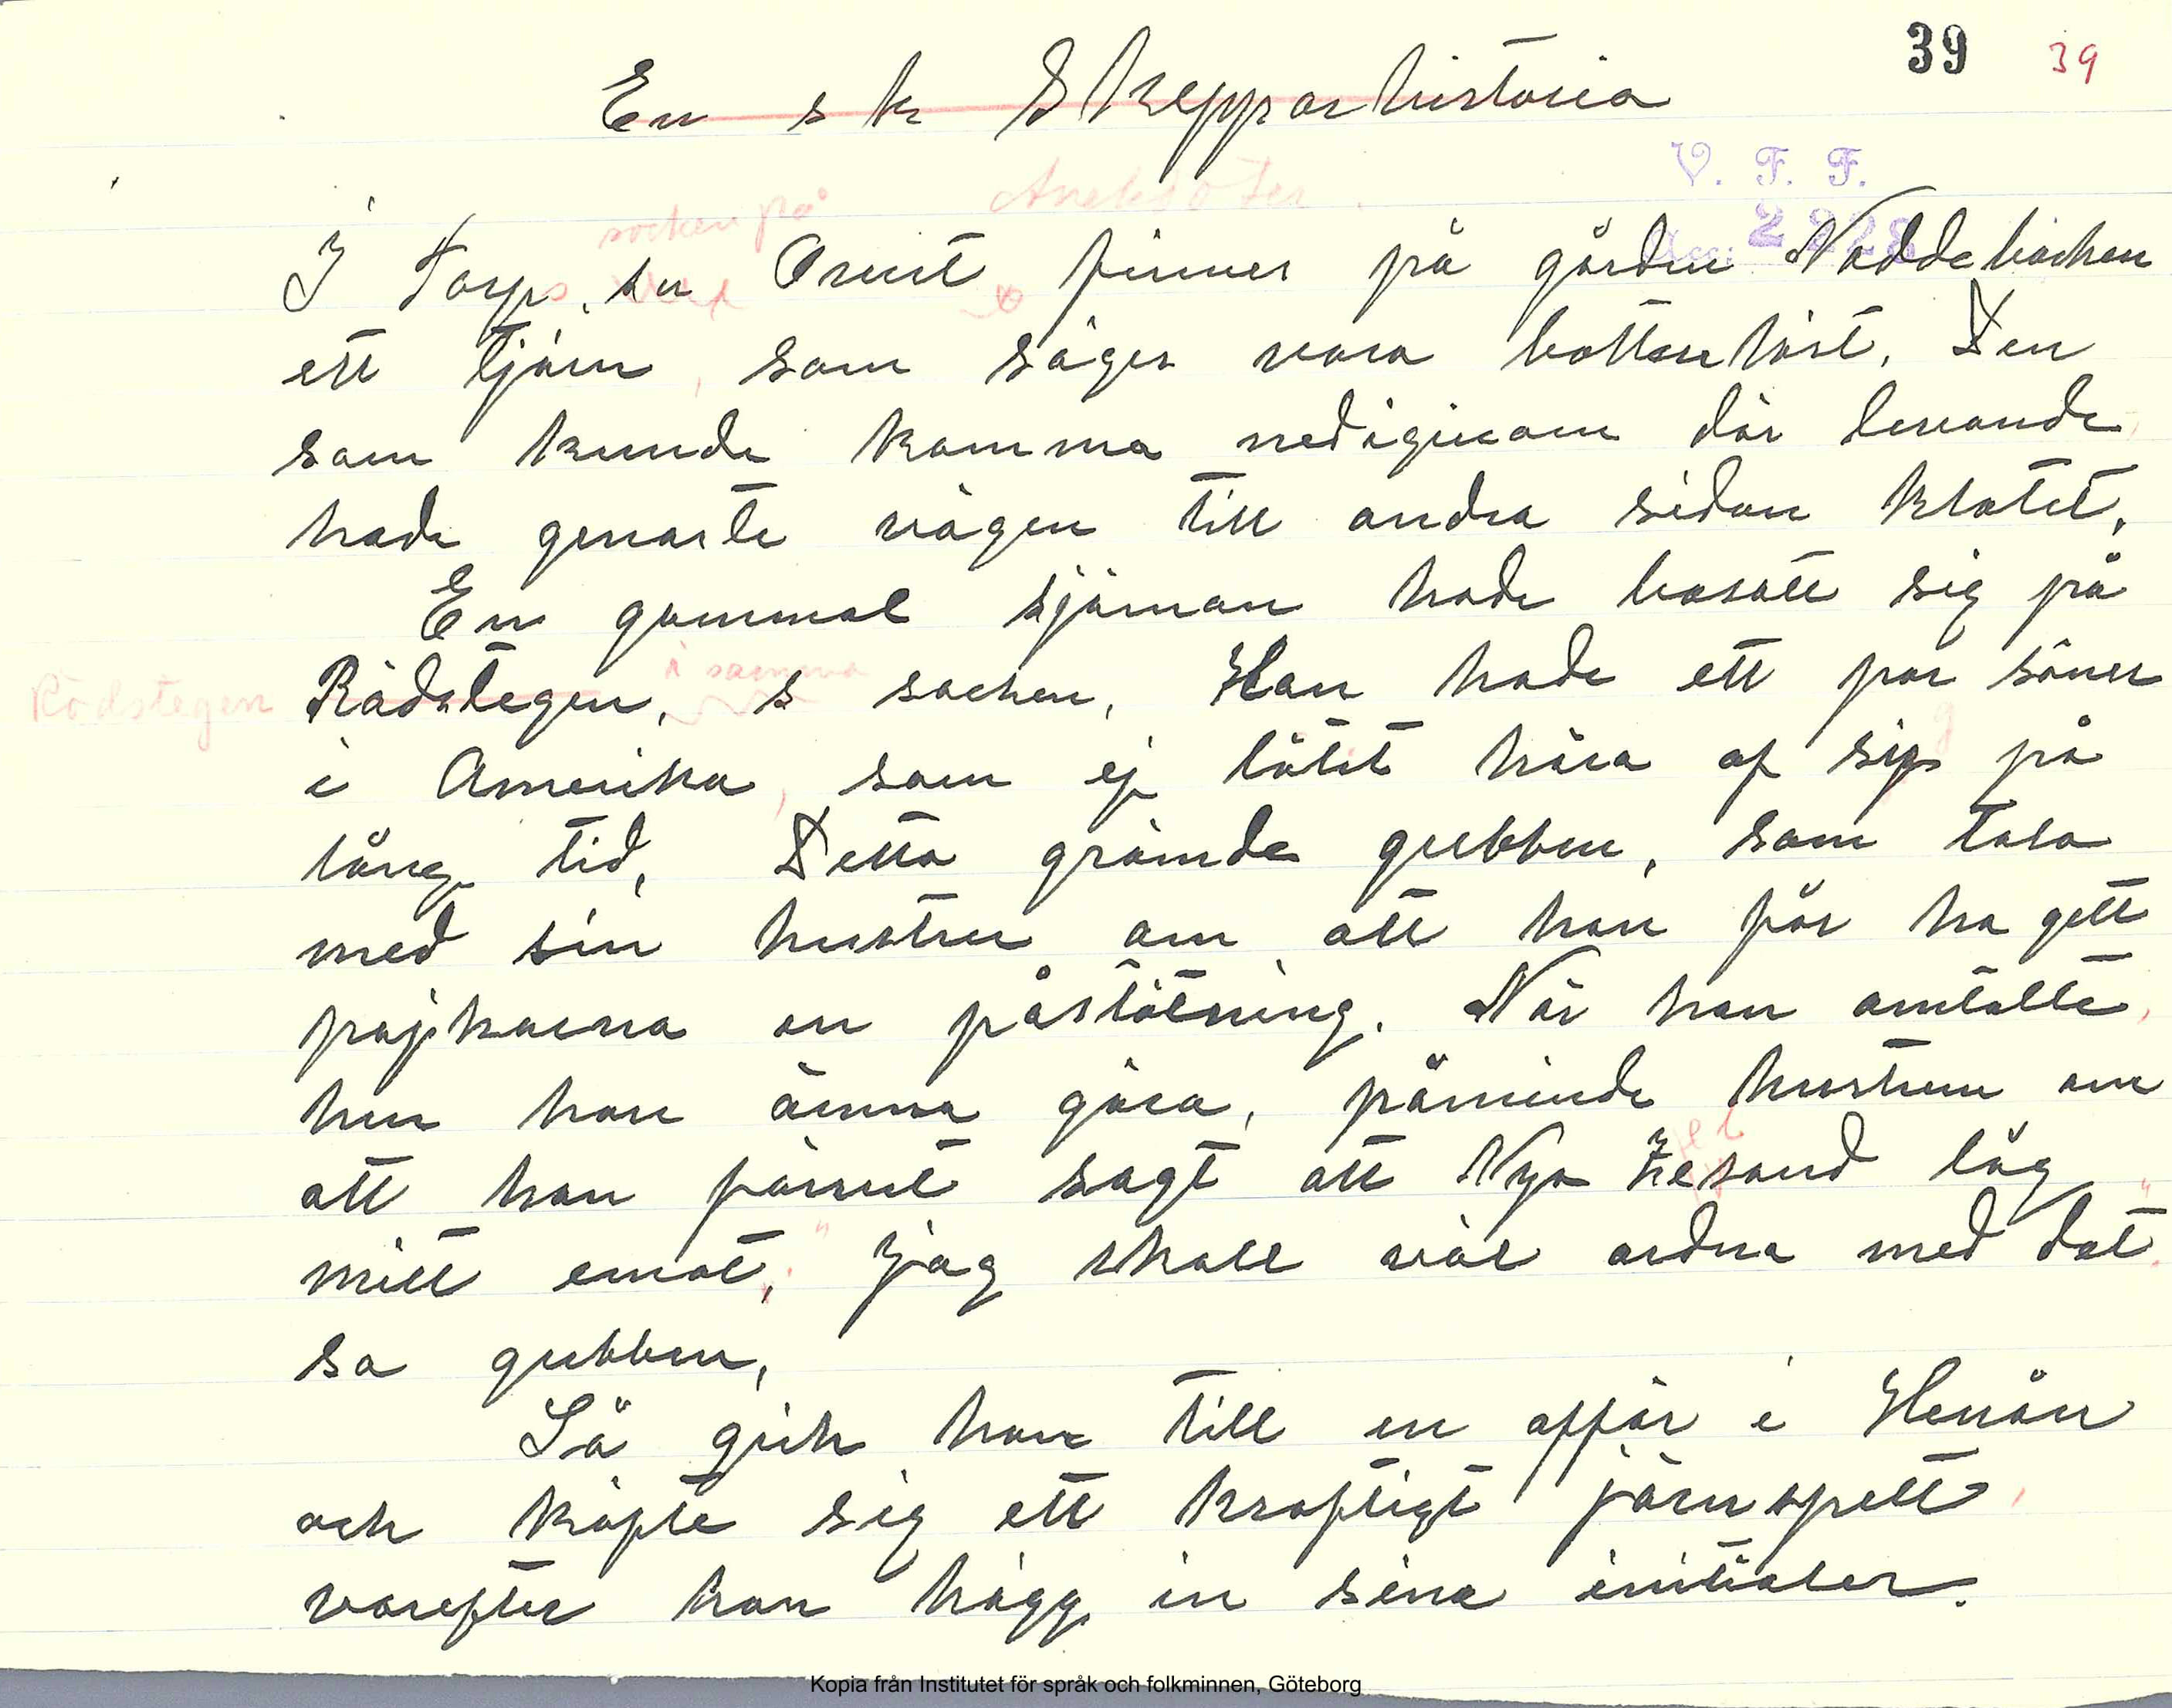 39 39
En s k Skepparhistoria
V. F. F.
Anekdoter.
socken på
I Torps sn Orust finnes på gården Näddebacken
ett tjärn, som säges vara bottenlöst. Den
som kunde komma nedigenom där levande,
hade genaste vägen till andra sidan klotet.
En gammal sjöman hade bosatt sig på
i samma
Rödstegen Rödstegen, s socken. Han hade ett par söner
i Amerika, som ej låtit höra af sig på
lång tid. Detta grämde gubben, som tala
med sin hustru om att han får ha gett
pojkarna en påstötning. När han omtalte,
hur han ämna göra, påminde hustrun om
att han förrut sagt att Nya Zeland låg
mitt emot. "Jag skall väl ordna med det",
sa gubben.
Så gick han till en affär i Henån
och köpte sig ett kraftigt järnspett,
varefter han högg in sina initialer.
Kopia från Institutet för språk och folkminnen, Göteborg